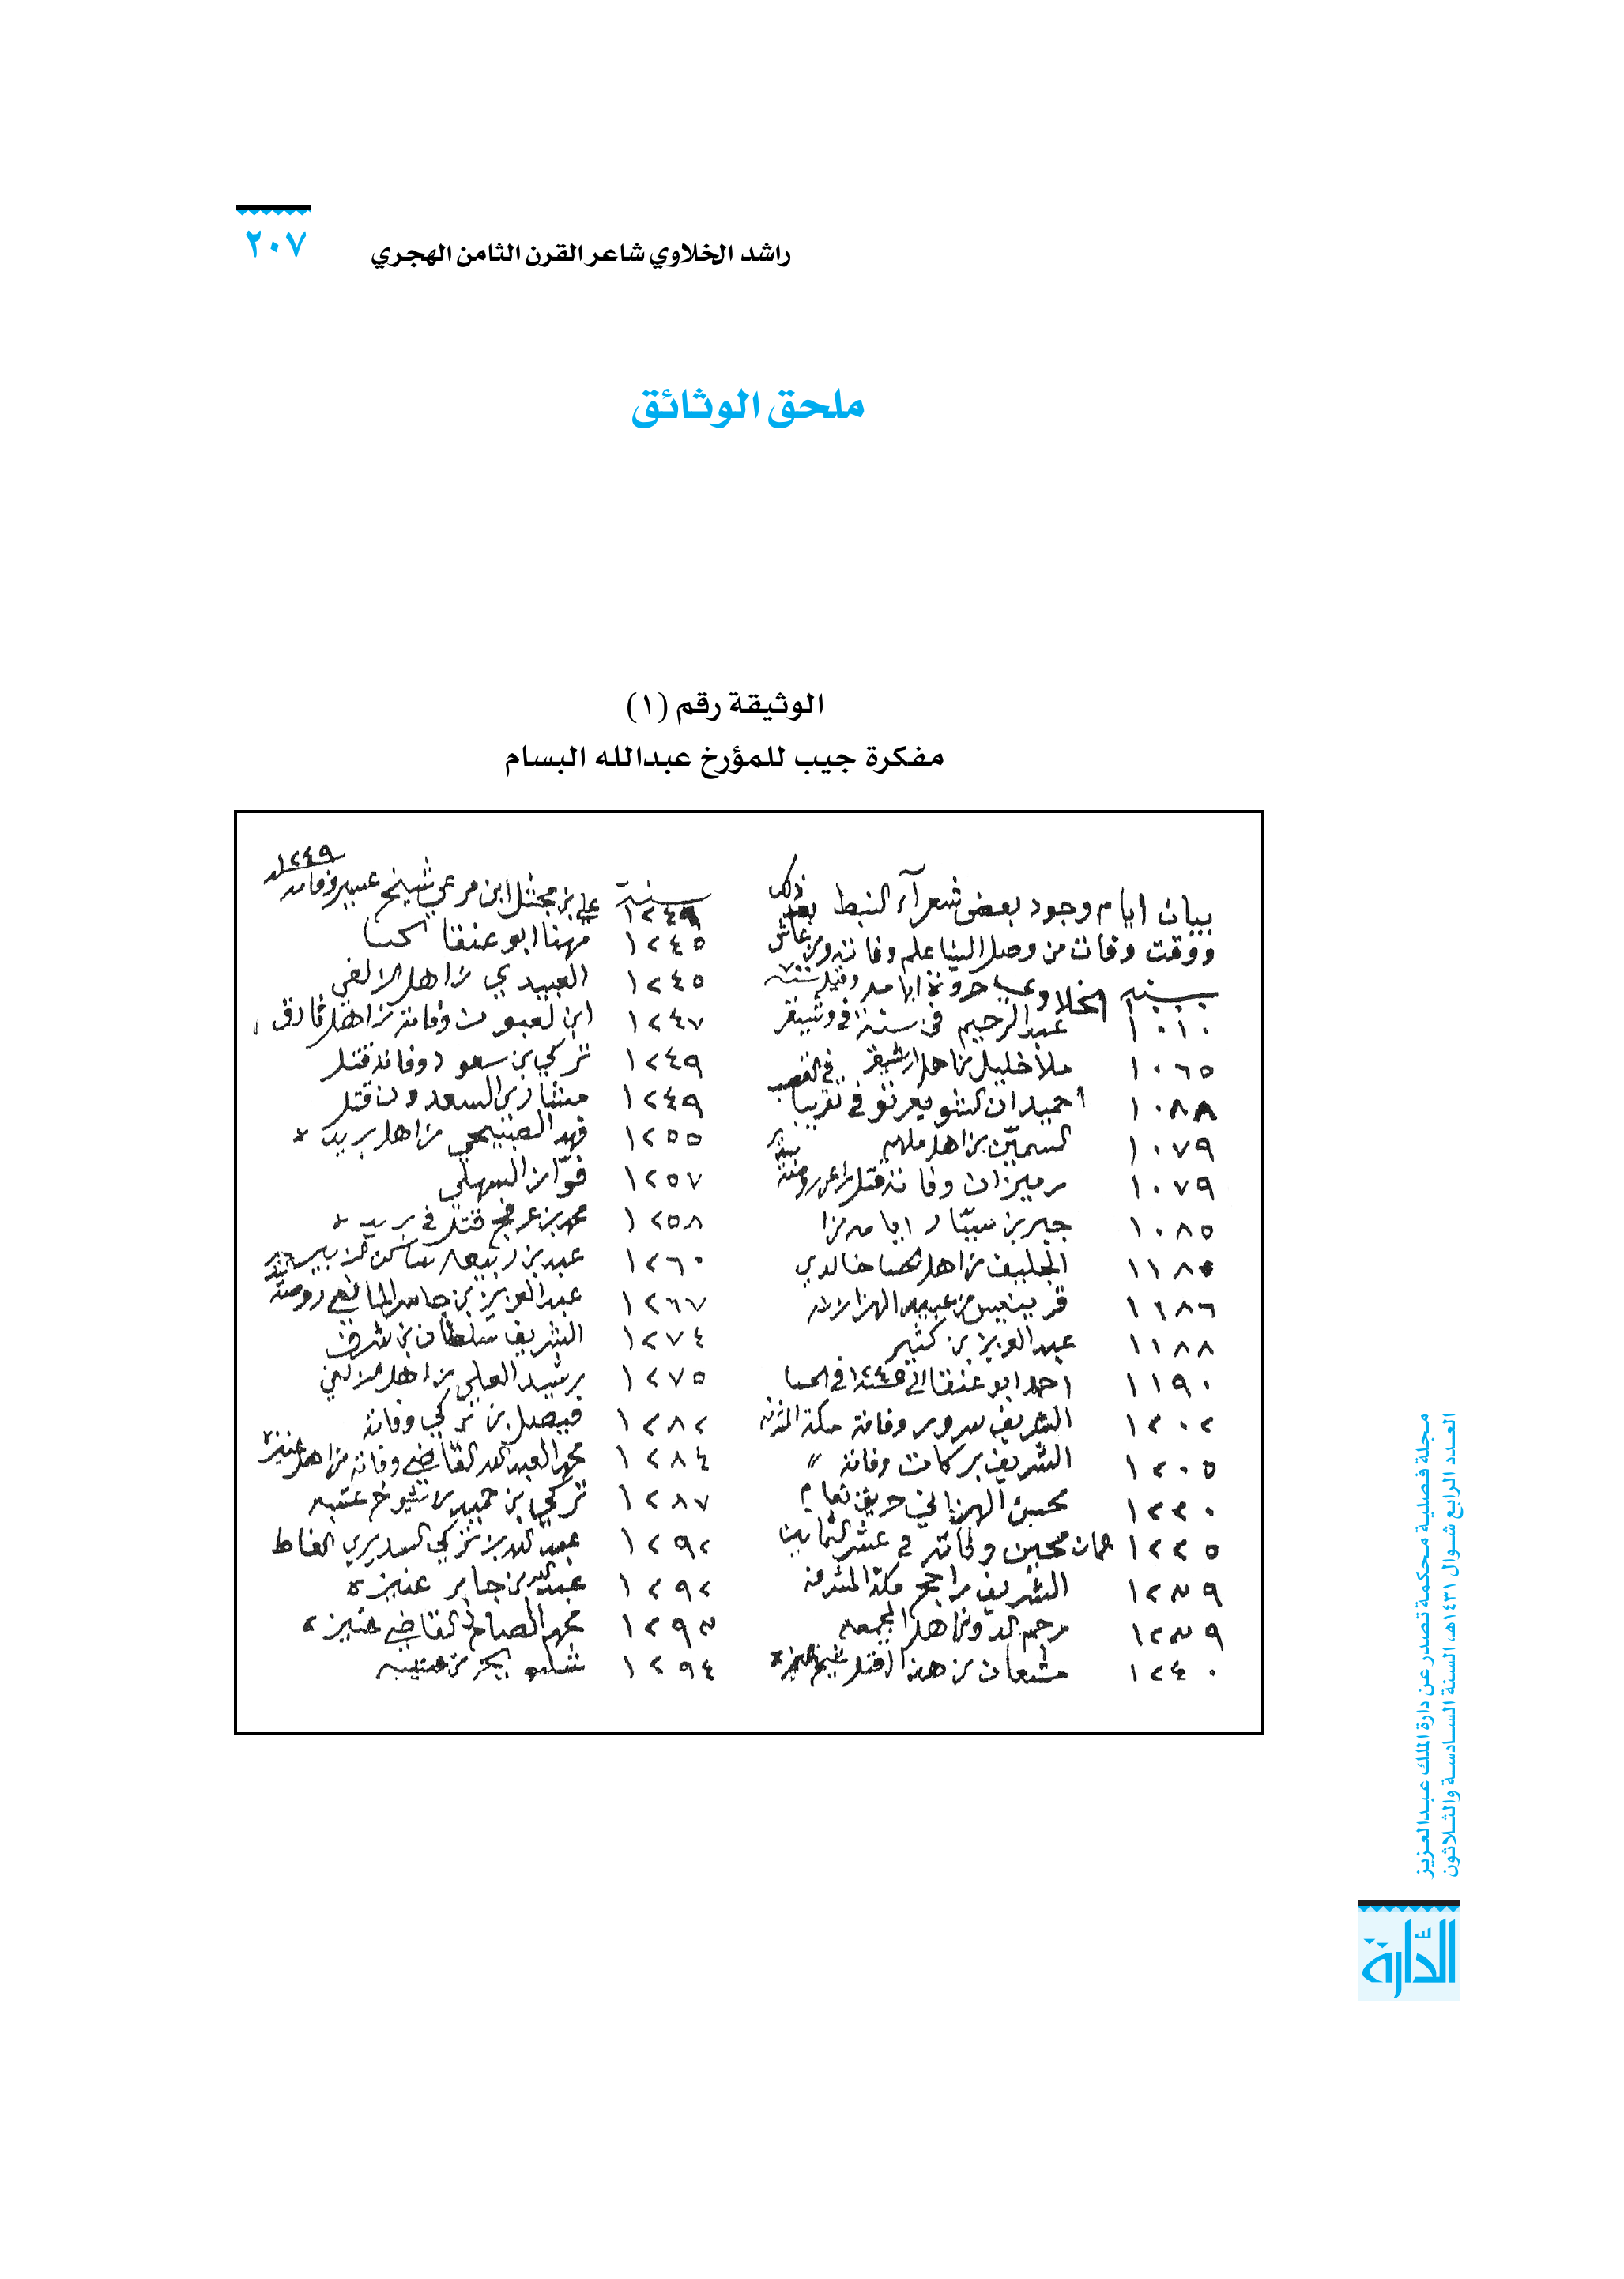 راشد الخلاوي شاعر القرن الثامن الهجري
٢٠٧
ملحق الوثائق
الوثيقة رقم (١)
مفكرة جيب للمؤرخ عبدالله البسام
بيان ايام وجود بعض شعرآء النبط
ووقت وفات من وصل الينا علم وفاته ومن عاش
سنة الخلاوي
١٠١٠ عبد الرحيم في سنة
١٠٦٥ ملا خليل من اهل
١٠٨٨ احميدان الشويعر في تقريبا في القصب
١٠٧٩ السمين من اهل ملهم
١٠٧٩ رميزان وفاته قتل
١٠٨٥ جبر بن سيار ايامه
الجليف من اهل خالدي
١١٨٦ من عبيد الهزازلة
١١٨٨ عبد العزيز بن كثير
١١٩٠ احمد ابو عنقا في الحسا
١٢٠٢ الشريف سرور وفاته مكة
١٢٠٥ الشريف بركات وفاته "
١٢٢٠ محسن الهزاني
١٢٢٥ وفاته في عشر الثمانين
١٢٣٩ الشريف راجح مكة المشرفة
١٢٣٩ من اهل المجمعه
١٢٤٠ مشعان بن هذال قتل
سنة ١٢٤٩ علي بن مجثل ابن مرعي شيخ عسير وفاته ١٢٤٩
١٢٤٥ مهنا ابو عنقا
١٢٤٥ العبيدي من اهل الزلفي
١٢٤٧ ابن لعبون وفاته
١٢٤٩ تركي بن سعود وفاته قتل
١٢٤٩ مشاري السعدون قتل
١٢٥٥ فهد الصبيحي من اهل بريده
١٢٥٧ فواز السهلي
١٢٥٨ محمد بن عرفج قتل في بريده
١٢٦٠ عبد بن ربيعه ساكن
١٢٦٧ عبد العزيز بن جاسر
١٢٧٤ الشريف سلطان بن شرف
١٢٧٥ رشيد العلي من اهل الزلفي
١٢٨٢ فيصل بن تركي وفاته
١٢٨٤ محمد العبد الله القاضي وفاته من اهل عنيزه
١٢٨٧ تركي بن حميد من شيوخ عتيبه
١٢٩٢ عبد الله بن تركي السديري الغاط
١٢٩٢ عبد الله بن جابر عنيزه
١٢٩٣ محمد الصالح القاضي عنيزه
١٢٩٤
مجلة فصلية محكمة تصدر عن دارة الملك عبدالعزيز
العدد الرابع شوال ١٤٣١هـ، السنة السادسة والثلاثون
الدارة